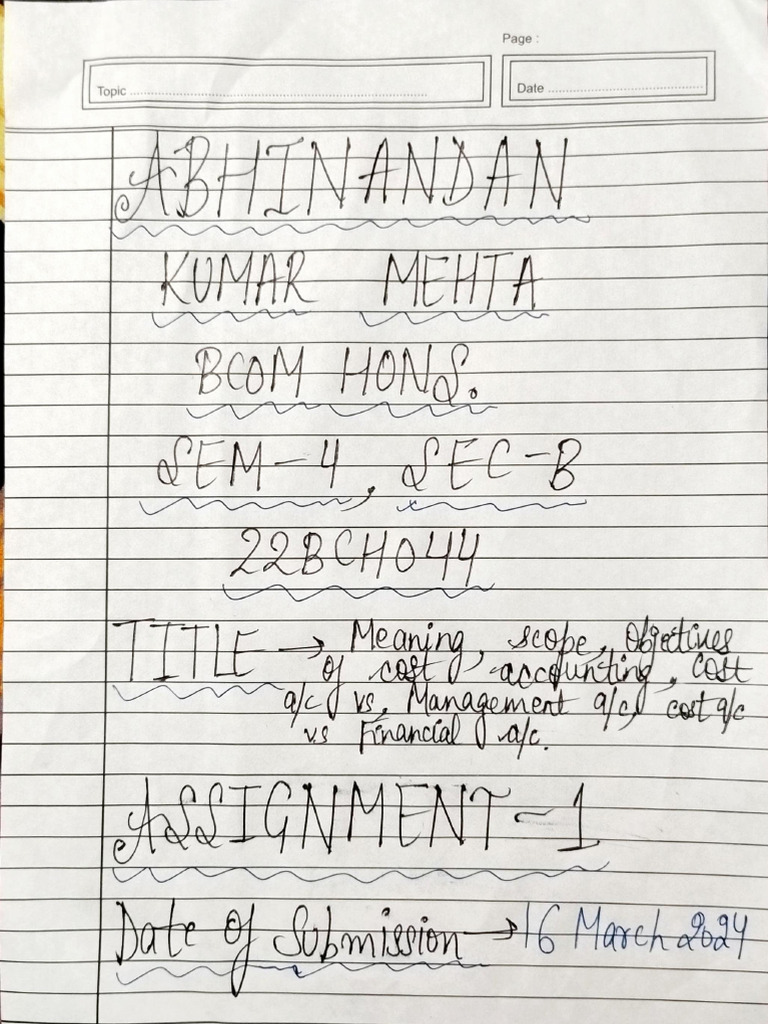 Page :
Topic
Date
ABHINANDAN
KUMAR MEHTA
BCOM HONS.
SEM-4, SEC-B
22BCH044
TITLE → Meaning, scope, objectives
of cost accounting, cost
a/c vs. Management a/c, cost a/c
vs Financial a/c.
ASSIGNMENT-1
Date of Submission → 16 March 2024